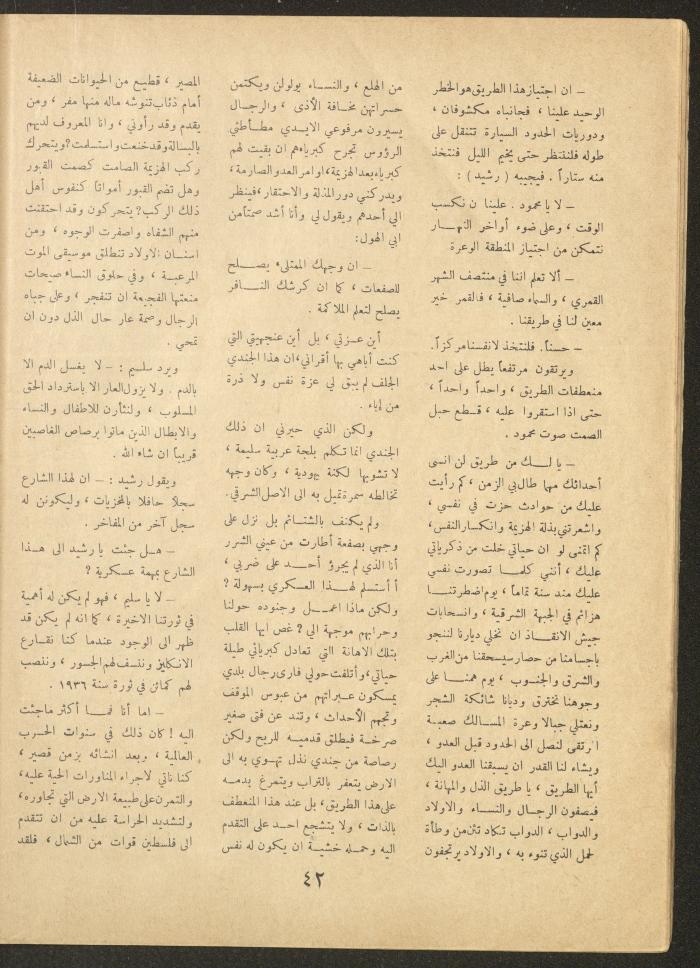 – ان اجتياز هذا الطريق هو الخطر
الوحيد علينا ، فجانباه مكشوفان ،
ودوريات الحدود السيارة تتنقل على
طوله فلننتظر حتى يخيم الليل فنتخذ
منه ستاراً . فيجيبه ( رشيد ) :
– لا يا محمود . علينا ن نكسب
الوقت ، وعلى ضوء أواخر النهار
نتمكن من اجتياز المنطقة الوعرة .
– ألا تعلم اننا في منتصف الشهر
القمري ، والسماء صافية ، فالقمر خير
معين لنا في طريقنا .
– حسناً . فلنتخذ لانفسنا مركزاً .
ويرتقون مرتفعاً يطل على احد
منعطفات الطريق ، واحداً واحداً ،
حتى اذا استقروا عليه ، قطع حبل
الصمت صوت محمود .
– يا لك من طريق لن انسى
أحداثك مها طال بي الزمن ، كم رأيت
عليك من حوادث حزت في نفسي ،
واشعرتني بذلة الهزيمة وانكسار النفس ،
كم اتمنى لو ان حياتي خلت من ذكرياتي
عليك ، أنني كلما تصورت نفسي
عليك منذ سنة تماماً ، يوم اضطرتنا
هزائم في الجبهة الشرقية ، وانسحابات
جيش الانقاذ ان نخلي ديارنا لننجو
باجسامنا من حصار سيسحقنا من الغرب
والشرق والجنوب ، يوم همنا على
وجوهنا نخترق وديانا شائكة الشجر
ونعتلي جبالا وعرة المسالك صعبة
ارتقى لنصل الى الحدود قبل العدو ،
ويشاء لنا القدر ان يسبقنا العدو اليك
أيها الطريق ، يا طريق الذل والمهانة ،
فيصفون الرجال والنساء والاولاد
والدواب ، الدواب تنكاد تئن من وطأة
لحمل الذي تنوء به ، والاولاد يرتجفون
من الهلع ، والنساء يولولن ويكتمن
حسراتهن مخافة الأذى ، والرجال
يسيرون مرفوعي الايدي مطأطئي
الرؤوس تجرح كبرياءهم ان بقيت لهم
كبرياء بعد الهزيمة ، اوامر العدو الصارمة ،
ويدركني دور المذلة والاحتقار ، فينظر
الي أحدهم ويقول لي وأنا أشد صمتاً من
ابي الهول :
– ان وجهك الممتلىء يصلح
للصفعات ، كما ان كرشك النافر
يصلح لتعلم الملاكمة .
أين عزتي ، بل أين عنجهيتي التي
كنت أباهي بها أقراني ، ان هذا الجندي
الجلف لم يبق لي عزة نفس ولا ذرة
من إباء .
ولكن الذي حيرني ان ذلك
الجندي انما تكلم بلجة عربية سليمة ،
لا تشوبها لكنة يهودية ، وكان وجهه
تخالطه سمرة تميل به الى الاصل الشرقي .
ولم يكتف بالشتائم بل نزل على
وجهي بصفعة أطارت من عيني الشرر
أنا الذي لم يجرؤ أحد على ضربي ،
أ أستسلم لهذا العسكري بسهولة ?
ولكن ماذا اعمل وجنوده حولنا
وحرابهم موجهة الي ? غص ايها القلب
بتلك الاهانة التي تعادل كبريائي طيلة
حياتي ، وأتلفت حولي فارى رجال بلدي
يمسكون عبراتهم من عبوس الموقف
وتجهم الأحداث ، وتند عن فتى صغير
صرخة فيطلق قدميه للريح ولكن
رصاصة من جندي نذل تهوي به الى
الارض يتعفر بالتراب ويتمرغ بدمه
على هذا الطريق ، بل عند هذا المنعطف
بالذات ، ولا يتشجع احد على التقدم
اليه وحمله خشية ان يكون له نفس
المصير ، قطيع من الحيوانات الضعيفة
أمام ذئاب تنوشه ماله منها مفر ، ومن
يقدم وقد رأوني ، وانا المعروف لديهم
بالبسالة وقد خنعت واستسلمت ? ويتحرك
ركب الهزيمة الصامت كصمت القبور
وهل تضم القبور أمواتاً كنفوس أهل
ذلك الركب ? يتحركون وقد احتقنت
منهم الشفاه واصفرت الوجوه ، ومن
اسنان الاولاد تنطلق موسيقى الموت
المرعبة ، وفي حلوق النساء صيحات
منعتها الفجيعة ان تنفجر ، وعلى جباه
الرجال وصمة عار حال الذل دون ان
تمحي .
ويرد سليم : – لا يغسل الدم الا
بالدم . ولا يزول العار الا باسترداد الحق
المسلوب ، ولنثأرن للاطفال والنساء
والابطال الذين ماتوا برصاص الغاصبين
قريباً ان شاء الله .
ويقول رشيد : – ان لهذا الشارع
سجلاً حافلا بالمخزيات ، وليكونن له
سجل آخر من المفاخر .
– هل جئت يا رشيد الى هذا
الشارع بمهمة عسكرية ?
– لا يا سليم ، فهو لم يكن له أهمية
في ثورتنا الاخيرة ، كما انه لم يكن قد
ظهر الى الوجود عندما كنا نقارع
الانكليز وننسف لهم الجسور ، وننصب
لهم كمائن في ثورة سنة ١٩٣٦ .
– اما أنا فما أكثر ماجئت
اليه ! كان ذلك في سنوات الحرب
العالمية ، وبعد انشائه بزمن قصير ،
كنا ناتي لاجراء المناورات الحية عليه ،
والتمرن على طبيعة الارض التي تجاوره ،
ولتشديد الحراسة عليه من ان تتقدم
الى فلسطين قوات من الشمال ، فلقد
٤٢